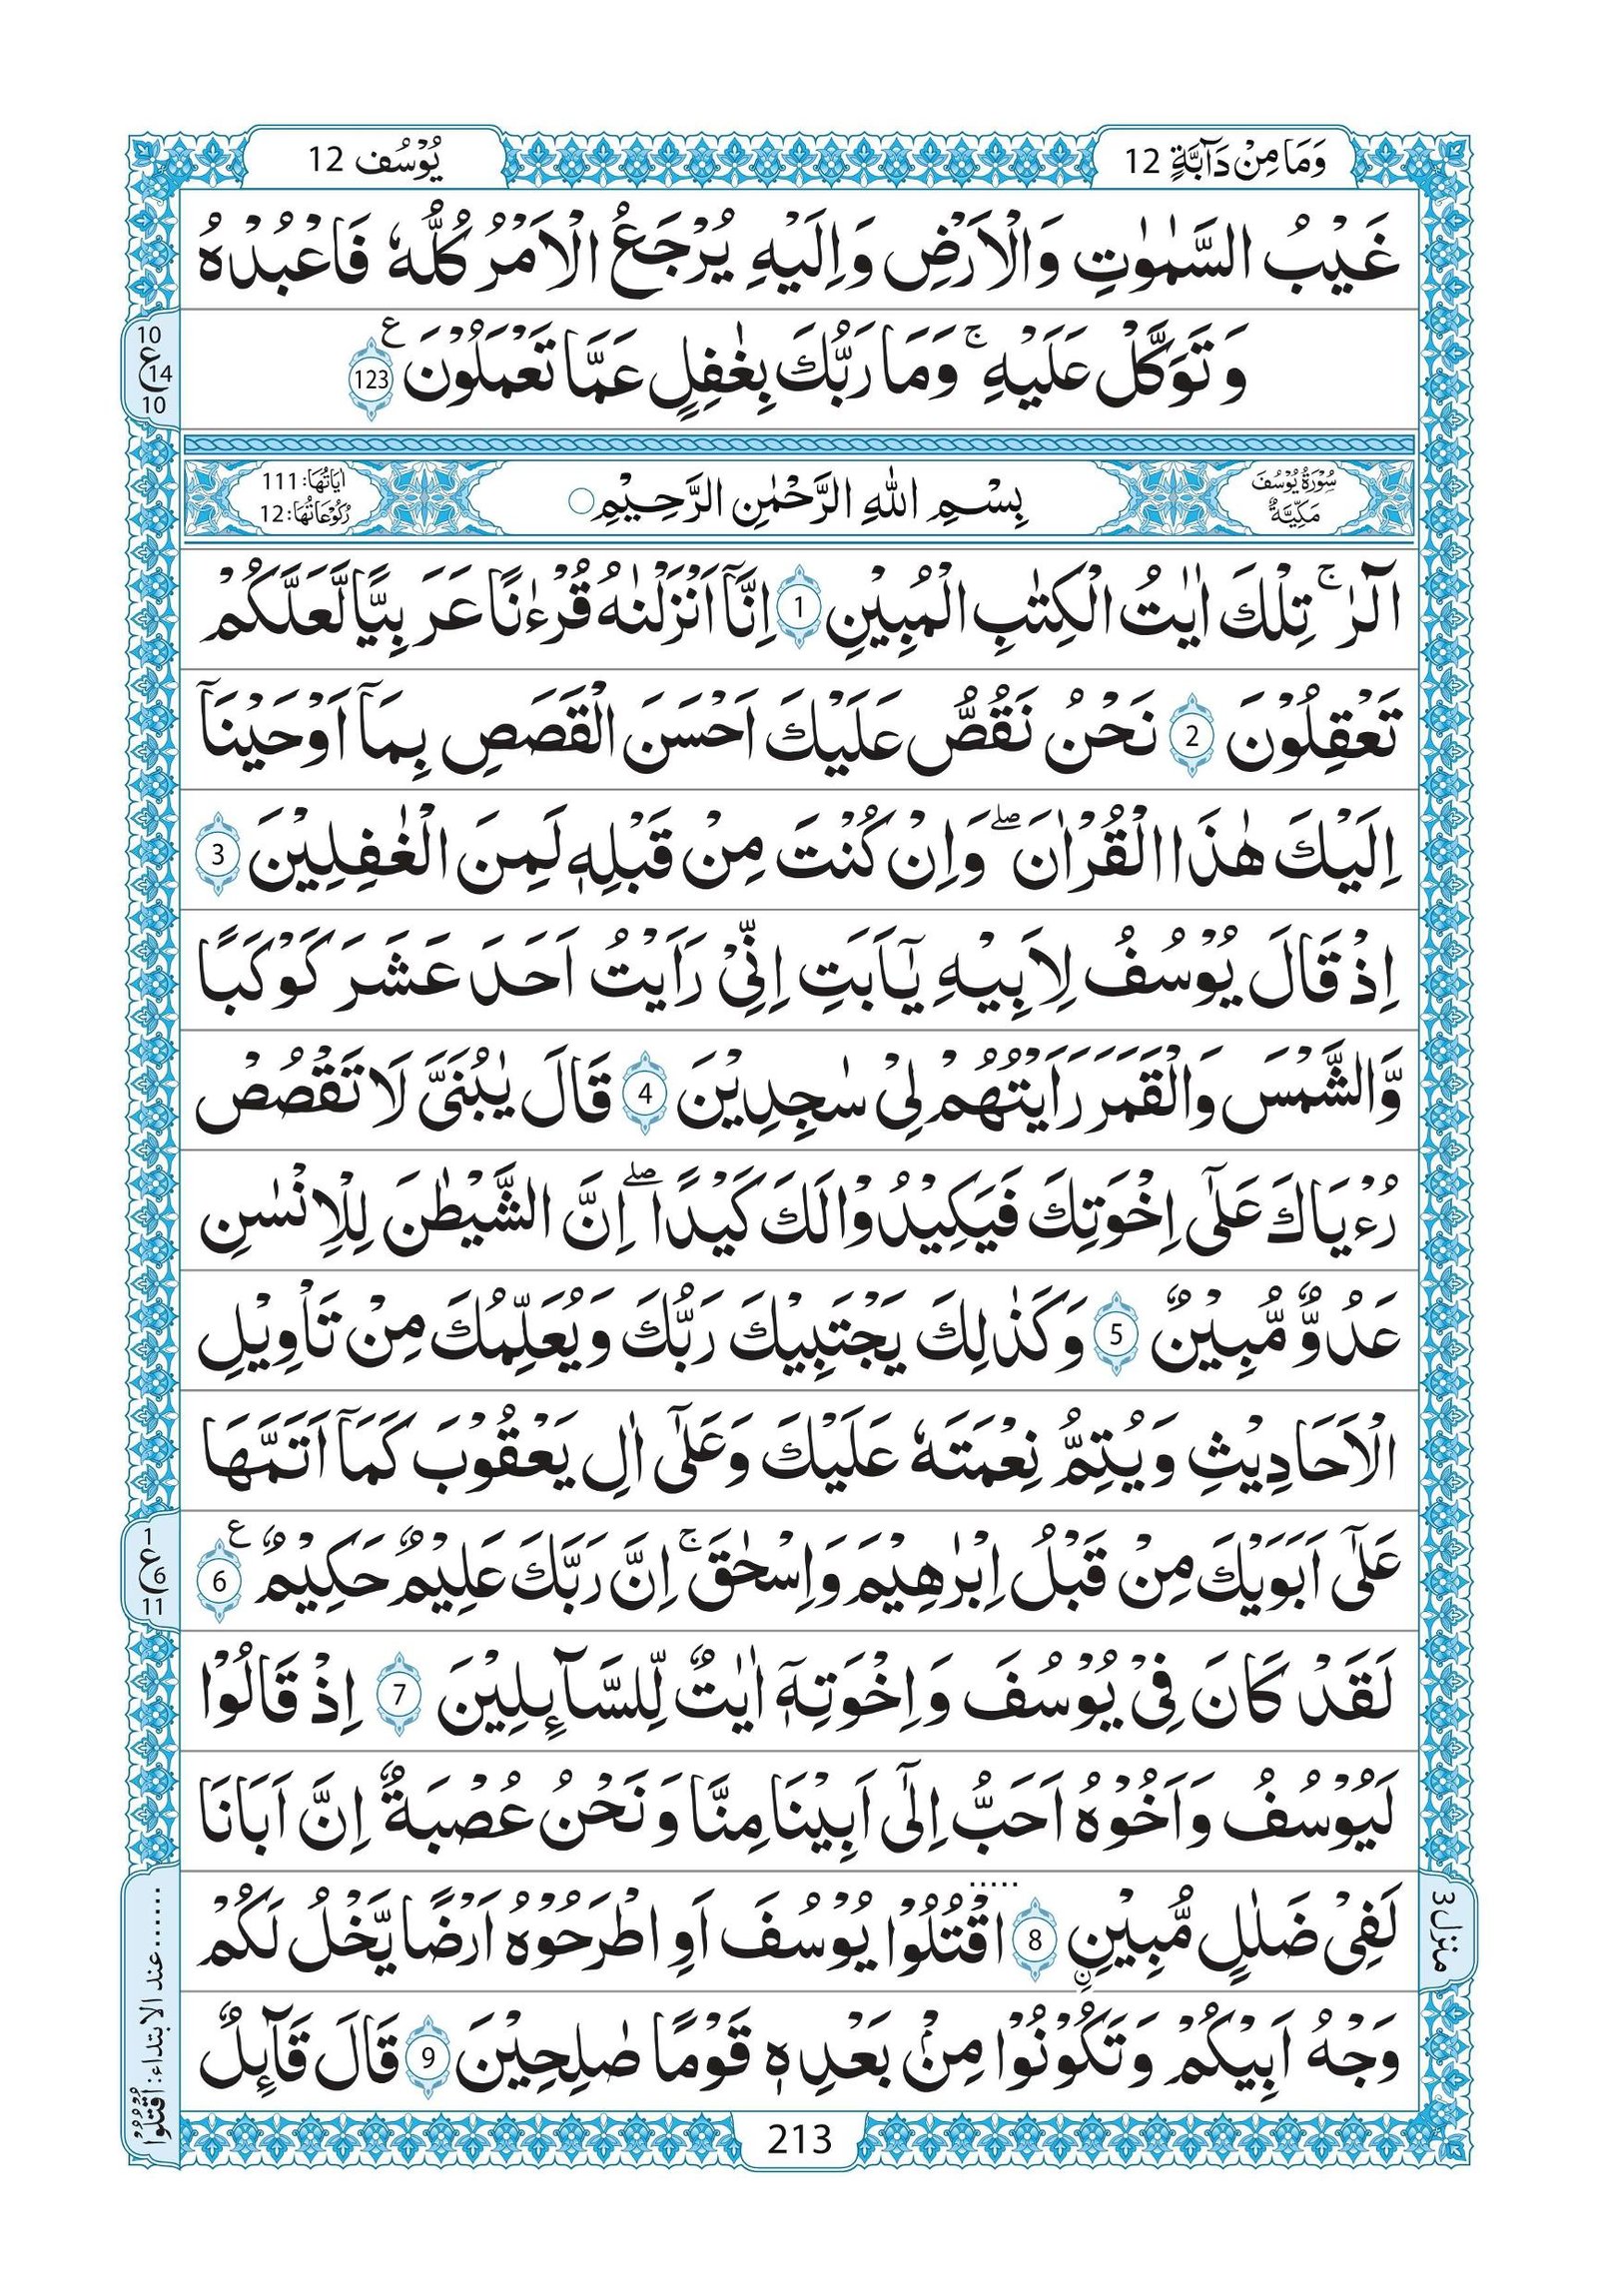 وَمَا مِنْ دَآبَّةٍ 12
يُوْسُف 12
غَيْبُ السَّمٰوٰتِ وَالْاَرْضِ وَاِلَيْهِ يُرْجَعُ الْاَمْرُ كُلُّهٗ فَاعْبُدْهُ
وَتَوَكَّلْ عَلَيْهِ ۚ وَمَا رَبُّكَ بِغٰفِلٍ عَمَّا تَعْمَلُوْنَ ࣖ 123
10
ع 14
10
سُوْرَةُ يُوْسُفَ
مَكِّيَّةٌ
بِسْمِ اللهِ الرَّحْمٰنِ الرَّحِيْمِ
اٰيَاتُهَا: 111
رُكُوْعَاتُهَا: 12
الٓرٰ ۚ تِلْكَ اٰيٰتُ الْكِتٰبِ الْمُبِيْنِ 1 اِنَّآ اَنْزَلْنٰهُ قُرْءٰنًا عَرَبِيًّا لَّعَلَّكُمْ
تَعْقِلُوْنَ 2 نَحْنُ نَقُصُّ عَلَيْكَ اَحْسَنَ الْقَصَصِ بِمَآ اَوْحَيْنَآ
اِلَيْكَ هٰذَا الْقُرْاٰنَ ۖ وَاِنْ كُنْتَ مِنْ قَبْلِهٖ لَمِنَ الْغٰفِلِيْنَ 3
اِذْ قَالَ يُوْسُفُ لِاَبِيْهِ يٰٓاَبَتِ اِنِّيْ رَاَيْتُ اَحَدَ عَشَرَ كَوْكَبًا
وَّالشَّمْسَ وَالْقَمَرَ رَاَيْتُهُمْ لِيْ سٰجِدِيْنَ 4 قَالَ يٰبُنَيَّ لَا تَقْصُصْ
رُءْيَاكَ عَلٰٓى اِخْوَتِكَ فَيَكِيْدُوْا لَكَ كَيْدًا ۖ اِنَّ الشَّيْطٰنَ لِلْاِنْسٰنِ
عَدُوٌّ مُّبِيْنٌ 5 وَكَذٰلِكَ يَجْتَبِيْكَ رَبُّكَ وَيُعَلِّمُكَ مِنْ تَاْوِيْلِ
الْاَحَادِيْثِ وَيُتِمُّ نِعْمَتَهٗ عَلَيْكَ وَعَلٰٓى اٰلِ يَعْقُوْبَ كَمَآ اَتَمَّهَا
عَلٰٓى اَبَوَيْكَ مِنْ قَبْلُ اِبْرٰهِيْمَ وَاِسْحٰقَ ۚ اِنَّ رَبَّكَ عَلِيْمٌ حَكِيْمٌ ࣖ 6
1
ع 6
11
لَقَدْ كَانَ فِيْ يُوْسُفَ وَاِخْوَتِهٖٓ اٰيٰتٌ لِّلسَّآىِٕلِيْنَ 7 اِذْ قَالُوْا
لَيُوْسُفُ وَاَخُوْهُ اَحَبُّ اِلٰٓى اَبِيْنَا مِنَّا وَنَحْنُ عُصْبَةٌ اِنَّ اَبَانَا
لَفِيْ ضَلٰلٍ مُّبِيْنِ 8 اقْتُلُوْا يُوْسُفَ اَوِ اطْرَحُوْهُ اَرْضًا يَّخْلُ لَكُمْ
وَجْهُ اَبِيْكُمْ وَتَكُوْنُوْا مِنْۢ بَعْدِهٖ قَوْمًا صٰلِحِيْنَ 9 قَالَ قَآىِٕلٌ
منزل 3
...... عند الابتداء: اُقْتُلُوْا
213